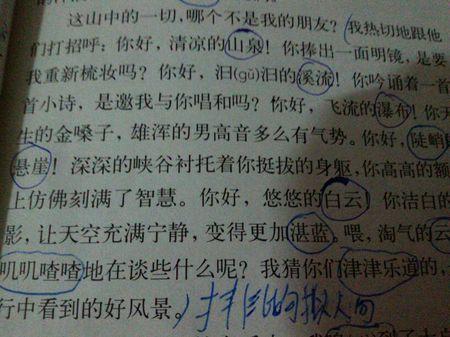 这山中的一切,哪个不是我的朋友?我热切地跟他
们打招呼:你好,清凉的山泉!你捧出一面明镜,是要
我重新梳妆吗?你好,汩(gǔ)汩的溪流!你吟诵着一首
首小诗,是邀我与你唱和吗?你好,飞流的瀑布!你天
生的金嗓子,雄浑的男高音多么有气势。你好,陡峭的
悬崖!深深的峡谷衬托着你挺拔的身躯,你高高的额
上仿佛刻满了智慧。你好,悠悠的白云!你洁白的
影,让天空充满宁静,变得更加湛蓝。喂,淘气的云
叽叽喳喳地在谈些什么呢?我猜你们津津乐道的,
行中看到的好风景。